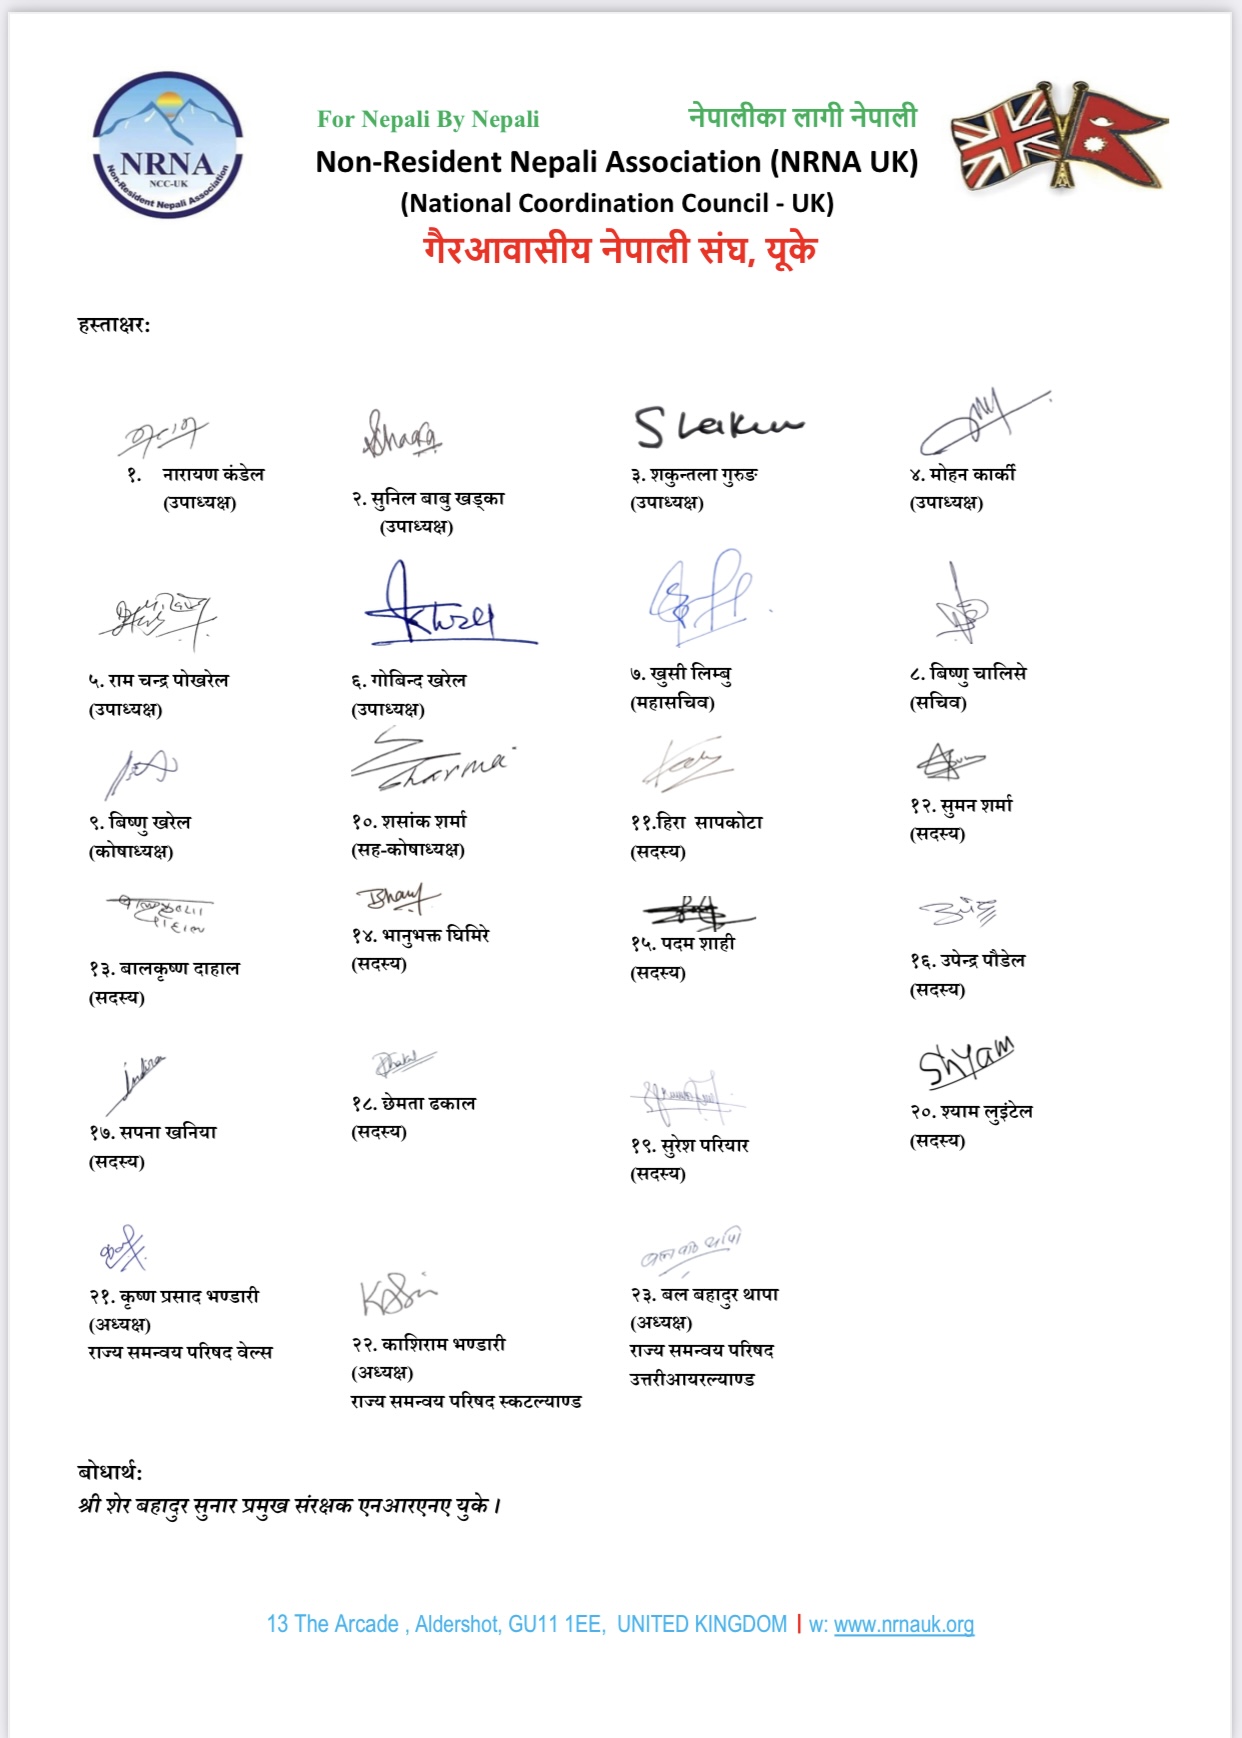 For Nepali By Nepali नेपालीका लागी नेपाली
Non-Resident Nepali Association (NRNA UK)
(National Coordination Council - UK)
गैरआवासीय नेपाली संघ, यूके
NRNA
NCC-UK
Non-Resident Nepali Association
हस्ताक्षर:
Sharma
Shyam
१. नारायण कंडेल
(उपाध्यक्ष)
२. सुनिल बाबु खड्का
(उपाध्यक्ष)
३. शकुन्तला गुरुङ
(उपाध्यक्ष)
४. मोहन कार्की
(उपाध्यक्ष)
५. राम चन्द्र पोखरेल
(उपाध्यक्ष)
६. गोबिन्द खरेल
(उपाध्यक्ष)
७. खुसी लिम्बु
(महासचिव)
८. बिष्णु चालिसे
(सचिव)
९. बिष्णु खरेल
(कोषाध्यक्ष)
१०. शसांक शर्मा
(सह-कोषाध्यक्ष)
११.हिरा सापकोटा
(सदस्य)
१२. सुमन शर्मा
(सदस्य)
१३. बालकृष्ण दाहाल
(सदस्य)
१४. भानुभक्त घिमिरे
(सदस्य)
१५. पदम शाही
(सदस्य)
१६. उपेन्द्र पौडेल
(सदस्य)
१७. सपना खनिया
(सदस्य)
१८. छेमता ढकाल
(सदस्य)
१९. सुरेश परियार
(सदस्य)
२०. श्याम लुइंटेल
(सदस्य)
२१. कृष्ण प्रसाद भण्डारी
(अध्यक्ष)
राज्य समन्वय परिषद वेल्स
२२. काशिराम भण्डारी
(अध्यक्ष)
राज्य समन्वय परिषद स्कटल्याण्ड
२३. बल बहादुर थापा
(अध्यक्ष)
राज्य समन्वय परिषद
उत्तरीआयरल्याण्ड
बोधार्थ:
श्री शेर बहादुर सुनार प्रमुख संरक्षक एनआरएनए युके ।
13 The Arcade , Aldershot, GU11 1EE, UNITED KINGDOM | w: www.nrnauk.org